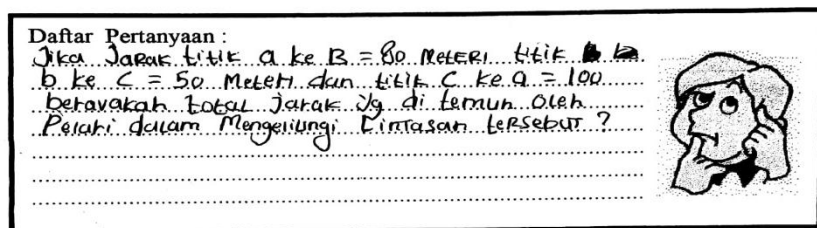 Daftar Pertanyaan :
Jika Jarak titik a ke B = 80 MeteRI titik
b ke C = 50 Meteri dan titik C ke a = 100
beravakah total Jarak yg di temuh oleh
Pelari dalam Mengelilingi Lintasan teRsebut ?